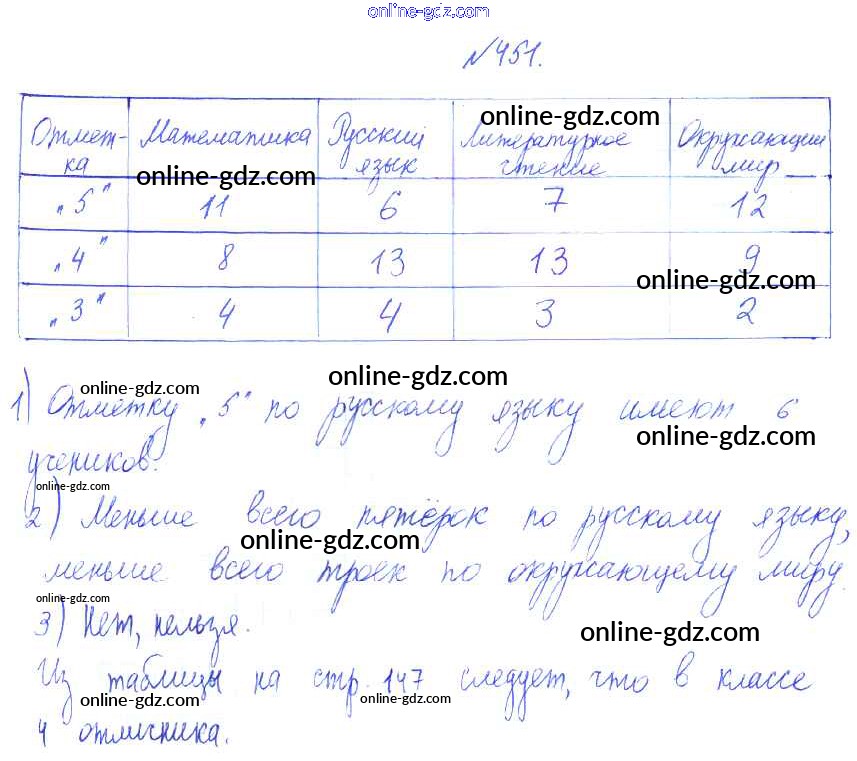 online-gdz.com
№451.
online-gdz.com
Отмет- Математика Русский Литературное Окружающий
ка язык чтение мир
online-gdz.com
"5" 11 6 7 12
"4" 8 13 13 9
online-gdz.com
"3" 4 4 3 2
online-gdz.com
online-gdz.com
1) Отметку "5" по русскому языку имеют 6
online-gdz.com
учеников.
online-gdz.com
2) Меньше всего пятёрок по русскому языку,
online-gdz.com
меньше всего троек по окружающему миру.
online-gdz.com
3) Нет, нельзя.
online-gdz.com
Из таблицы на стр. 147 следует, что в классе
online-gdz.com online-gdz.com
4 отличника.